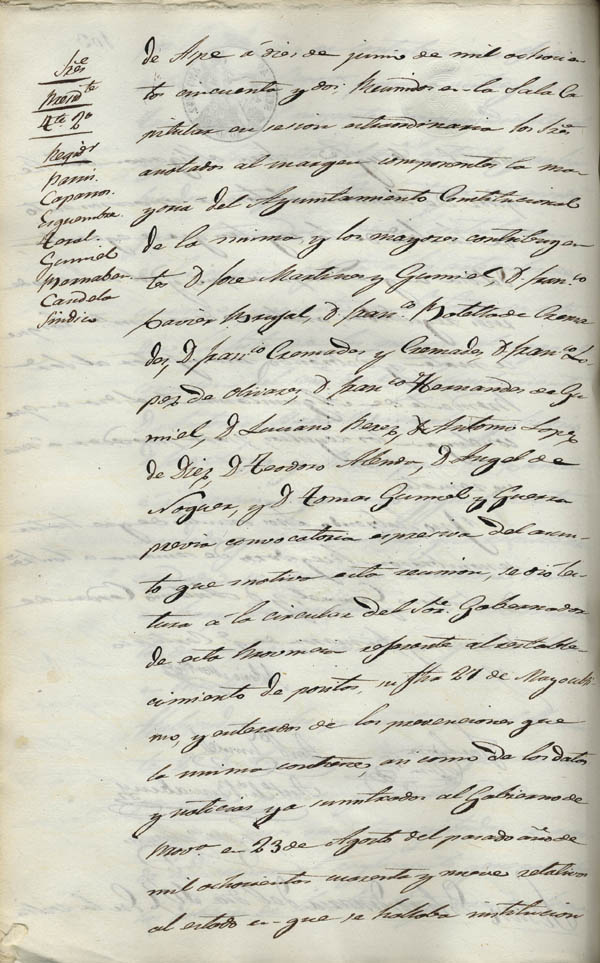 Sres
Presidte
4te 2o
Regidr
Pavia.
Caparros.
Esquembre.
Toral.
Gumiel
Bernaber.
Candela
Sindico
de Aspe á diez de junio de mil ochocien-
tos cincuenta y dos: Reunidos en la Sala Ca
pitular en sesion estraordinaria los Sres
anotados al margen componentes la ma-
yoria del Ayuntamiento Constitucional
de la misma, y los mayores contribuyen-
tes D. Jose Martinez y Gumiel, D. Franco
Xavier D. Franco Botella de Crema-
des, D. Franco Cremades y Cremades, D. Franco Lo-
pez de Olivares, D. Franco Hernandez de Gu-
miel, D. Luciano Perez, D. Antonio Lopez
de Diez, D. Teodoro D. Angel de
Noguer, y D. Tomas Gumiel y Guerra
previa convocatoria espresiva del asun-
to que motiva esta reunion, se dió lec-
tura á la circular del Sor. Gobernador
de esta Provincia referente al restable-
cimiento de positos, su fha 21 de Mayo ulti-
mo, y enterados de las prevenciones que
la misma contiene, asi como de los datos
y noticias ya suministrados al Gobierno de
Prova en 23 de Agosto del pasado año de
mil ochocientos cuarenta y nueve relativos
al estado en que se hallaba institucion